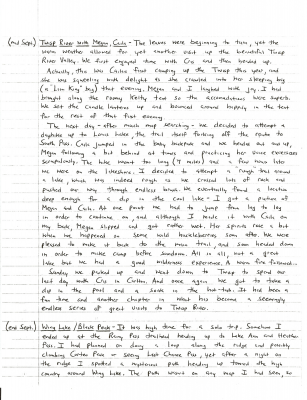 (mid Sept.) Twisp River with Megan, Carlo - The leaves were beginning to turn, yet the
warm weather allowed for yet another visit up the beautiful Twisp
River Valley. We first enjoyed dinner with Cris and then headed up.
Actually, this was Carlo's first camping up the Twisp this year, and
she was squealing with delight as she crawled into her sleeping bag
(a "Lion King" bag) that evening. Megan and I laughed with joy. I had
brought along the roomy Kelty tent so the accomodations were superb.
We set the candle lanterns up and bounced around happily in the tent
for the rest of that first evening.
The next day - after much map searching - we decided to attempt a
dayhike up to Louis Lake, the trail itself forking off the route to
South Pass. Carlo jumped in the baby backpack and we headed out and up,
Megan following a bit behind at times and practicing her snow exercises
scrupulously. The hike wasn't too long (7 miles) and a few hours later
we were on the lakeshore. I decided to attempt a rough trail around
a lake, which was indeed rough as we crossed lots of rock and
pushed our way through endless brush. We eventually found a location
deep enough for a dip in the cool lake - I got a picture of
Megan and Carlo. At one point we had to jump from log to log
in order to continue on, and although I made it with Carlo on
my back, Megan slipped and got rather wet. Her spirits rose a bit
when we happened on some wild huckleberries soon after. We were
pleased to make it back to the main trail, and soon headed down
in order to make camp before sundown. All in all, not a great
hike but we had a good wilderness experience. A warm fire followed...
Sunday we packed up and went down to Twisp to spend our
last day with Cris in Carlton. And once again we got to take a
dip in the pool and a soak in the hot-tub. It had been a
fun time and another chapter in what has become a seemingly
endless series of great visits to Twisp River.
(end Sept.) Wing Lake / Black Peak - It was high time for a solo trip. Somehow I
ended up at the Rainy Pass trailhead heading up to Lake Ann and Heather
Pass. I had planned on doing a loop along the ridge and possibly
climbing Corteo Peak or seeing Last Chance Pass, yet after a night on
the ridge I spotted a mysterious path heading up toward the high
country around Wing Lake. The path wasn't on any map I had seen, so